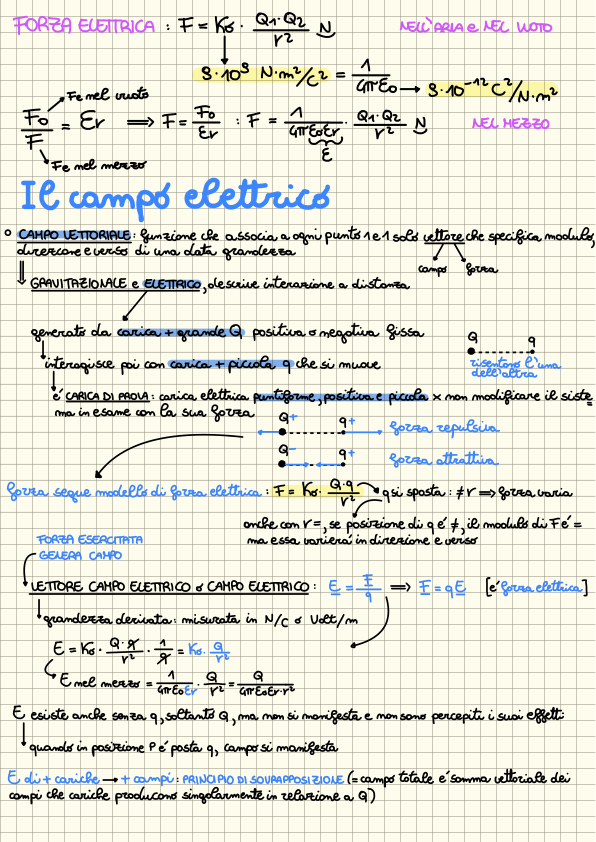 FORZA ELETTRICA : F = K₀ · Q₁·Q₂/r² N NELL'ARIA e NEL VUOTO
9·10⁹ N·m²/C² = 1/4πε₀ → 9·10⁻¹² C²/N·m²
Fe nel vuoto
F₀/F = εr ⟹ F = F₀/εr : F = 1/4πε₀εr · Q₁·Q₂/r² N NEL MEZZO
ε
Fe nel mezzo
Il campo elettrico
° CAMPO VETTORIALE: funzione che associa a ogni punto 1 e 1 solo vettore che specifica modulo,
direzione e verso di una data grandezza
campo forza
⇓ GRAVITAZIONALE e ELETTRICO, descrive interazione a distanza
generato da carica + grande Q positiva o negativa fissa
Q q
interagisce poi con carica + piccola q che si muove
risentono l'una
dell'altra
è CARICA DI PROVA: carica elettrica puntiforme, positiva e piccola x non modificare il siste
ma in esame con la sua forza
Q⁺ q⁺ forza repulsiva
Q⁻ q⁺ forza attrattiva
forza segue modello di forza elettrica : F = K₀ · Q·q/r² → q si sposta : ≠ r ⟹ forza varia
anche con r =, se posizione di q è ≠, il modulo di F è =
ma essa varierà in direzione e verso
FORZA ESERCITATA
GENERA CAMPO
VETTORE CAMPO ELETTRICO o CAMPO ELETTRICO : E = F/q ⟹ F = qE [è forza elettrica]
grandezza derivata : misurata in N/C o Volt/m
E = K₀ · Q·q/r² · 1/q = K₀ · Q/r²
E nel mezzo = 1/4πε₀εr · Q/r² = Q/4πε₀εr·r²
E esiste anche senza q, soltanto Q, ma non si manifesta e non sono percepiti i suoi effetti
quando in posizione P è posta q, campo si manifesta
E di + cariche → + campi : PRINCIPIO DI SOVRAPPOSIZIONE (= campo totale è somma vettoriale dei
campi che cariche producono singolarmente in relazione a Q)